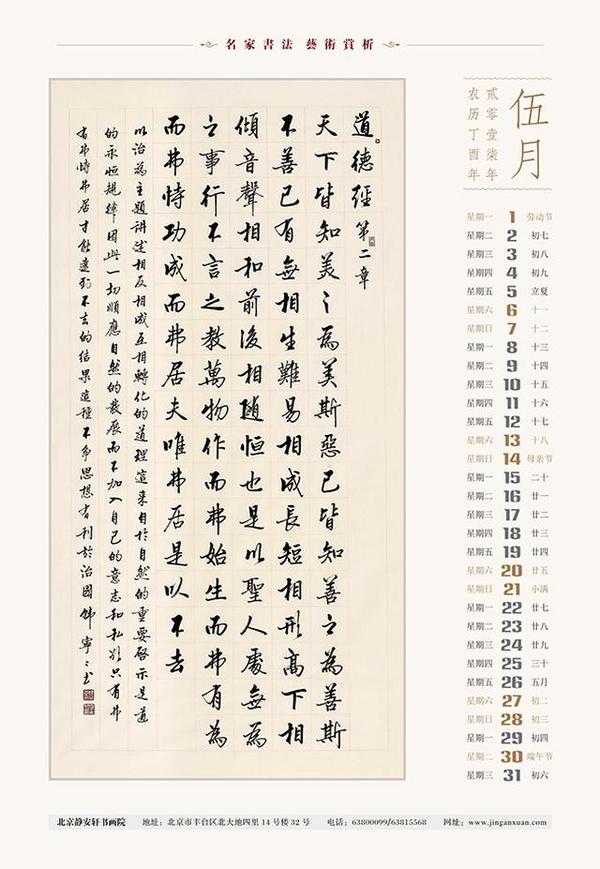 名家書法 藝術賞析
伍月
貳零壹柒年
农历丁酉年
道德經 第二章
天下皆知美之為美斯惡已皆知善之為善斯
不善已有無相生難易相成長短相形高下相
傾音聲相和前後相隨恒也是以聖人處無為
之事行不言之教萬物作而弗始生而弗有為
而弗恃功成而弗居夫唯弗居是以不去
以治為主題講述相反相成互相轉化的道理這來自於自然的重要啓示是道
的永恒規律因此一切順應自然的發展而不加入自己的意志和私欲只有弗
有弗恃弗居才能達到不去的結果這種不爭思想有利於治國 寧〻書
星期一 1 劳动节
星期二 2 初七
星期三 3 初八
星期四 4 初九
星期五 5 立夏
星期六 6 十一
星期日 7 十二
星期一 8 十三
星期二 9 十四
星期三 10 十五
星期四 11 十六
星期五 12 十七
星期六 13 十八
星期日 14 母亲节
星期一 15 二十
星期二 16 廿一
星期三 17 廿二
星期四 18 廿三
星期五 19 廿四
星期六 20 廿五
星期日 21 小满
星期一 22 廿七
星期二 23 廿八
星期三 24 廿九
星期四 25 三十
星期五 26 五月
星期六 27 初二
星期日 28 初三
星期一 29 初四
星期二 30 端午节
星期三 31 初六
北京静安轩书画院 地址：北京市丰台区北大地四里14号楼32号 电话：63800099/63815568 网址：www.jinganxuan.com